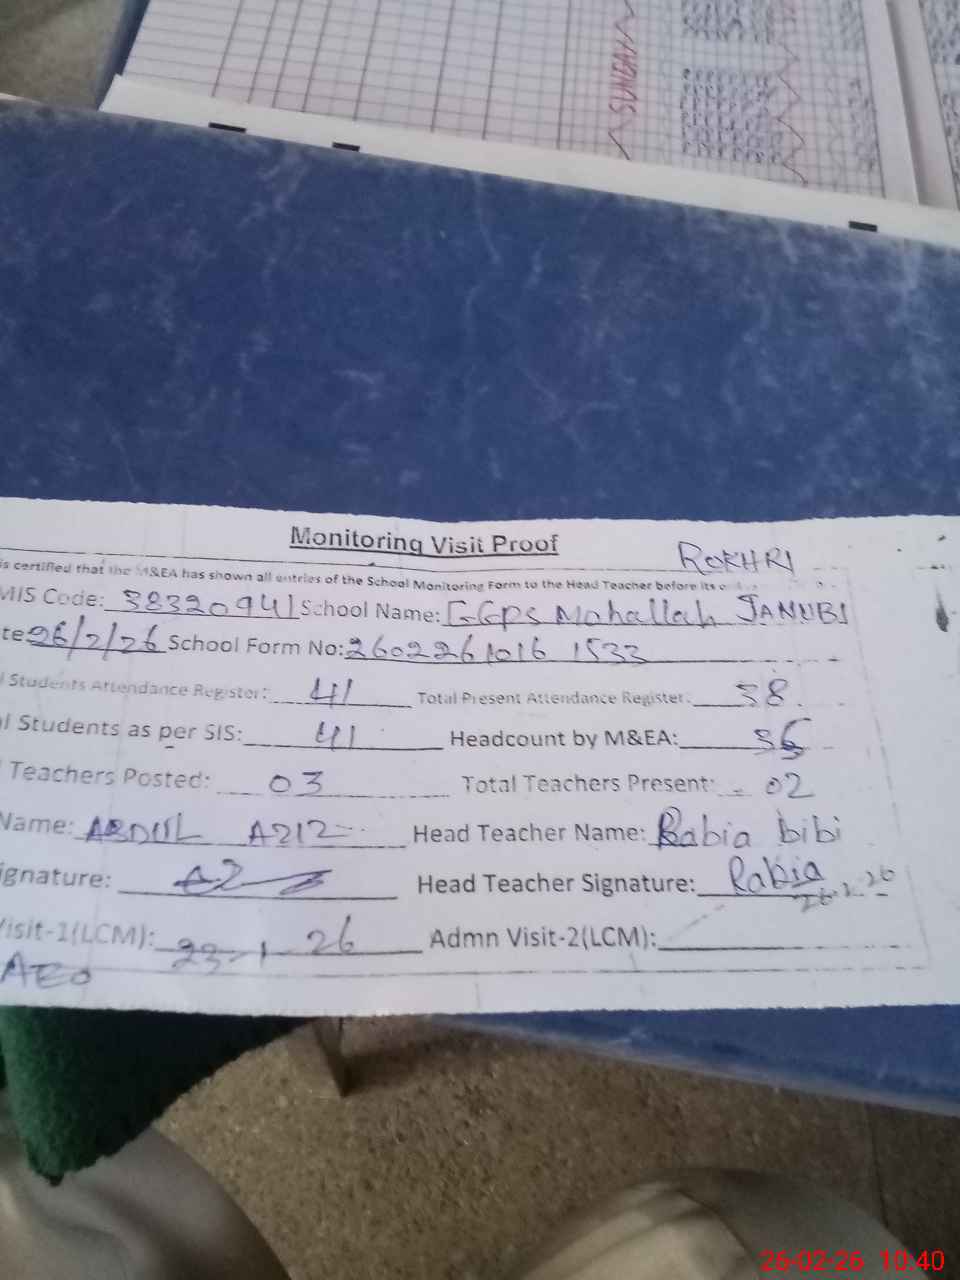 SUNDAY
Monitoring Visit Proof
ROKHRI
is certified that the M&EA has shown all entries of the School Monitoring Form to the Head Teacher before its
MIS Code: 38320941 School Name: GGPS Mohallah JANUBI
te 26/2/26 School Form No: 2602261016 1533
l Students Attendance Register: 41 Total Present Attendance Register: 38
al Students as per SIS: 41 Headcount by M&EA: 36
Teachers Posted: 03 Total Teachers Present: 02
Name: ABDUL AZIZ Head Teacher Name: Rabia bibi
ignature: Head Teacher Signature: Rabia
26.2.26
Visit-1(LCM): 23-1 26 Admn Visit-2(LCM):
AEO
26-02-26 10:40